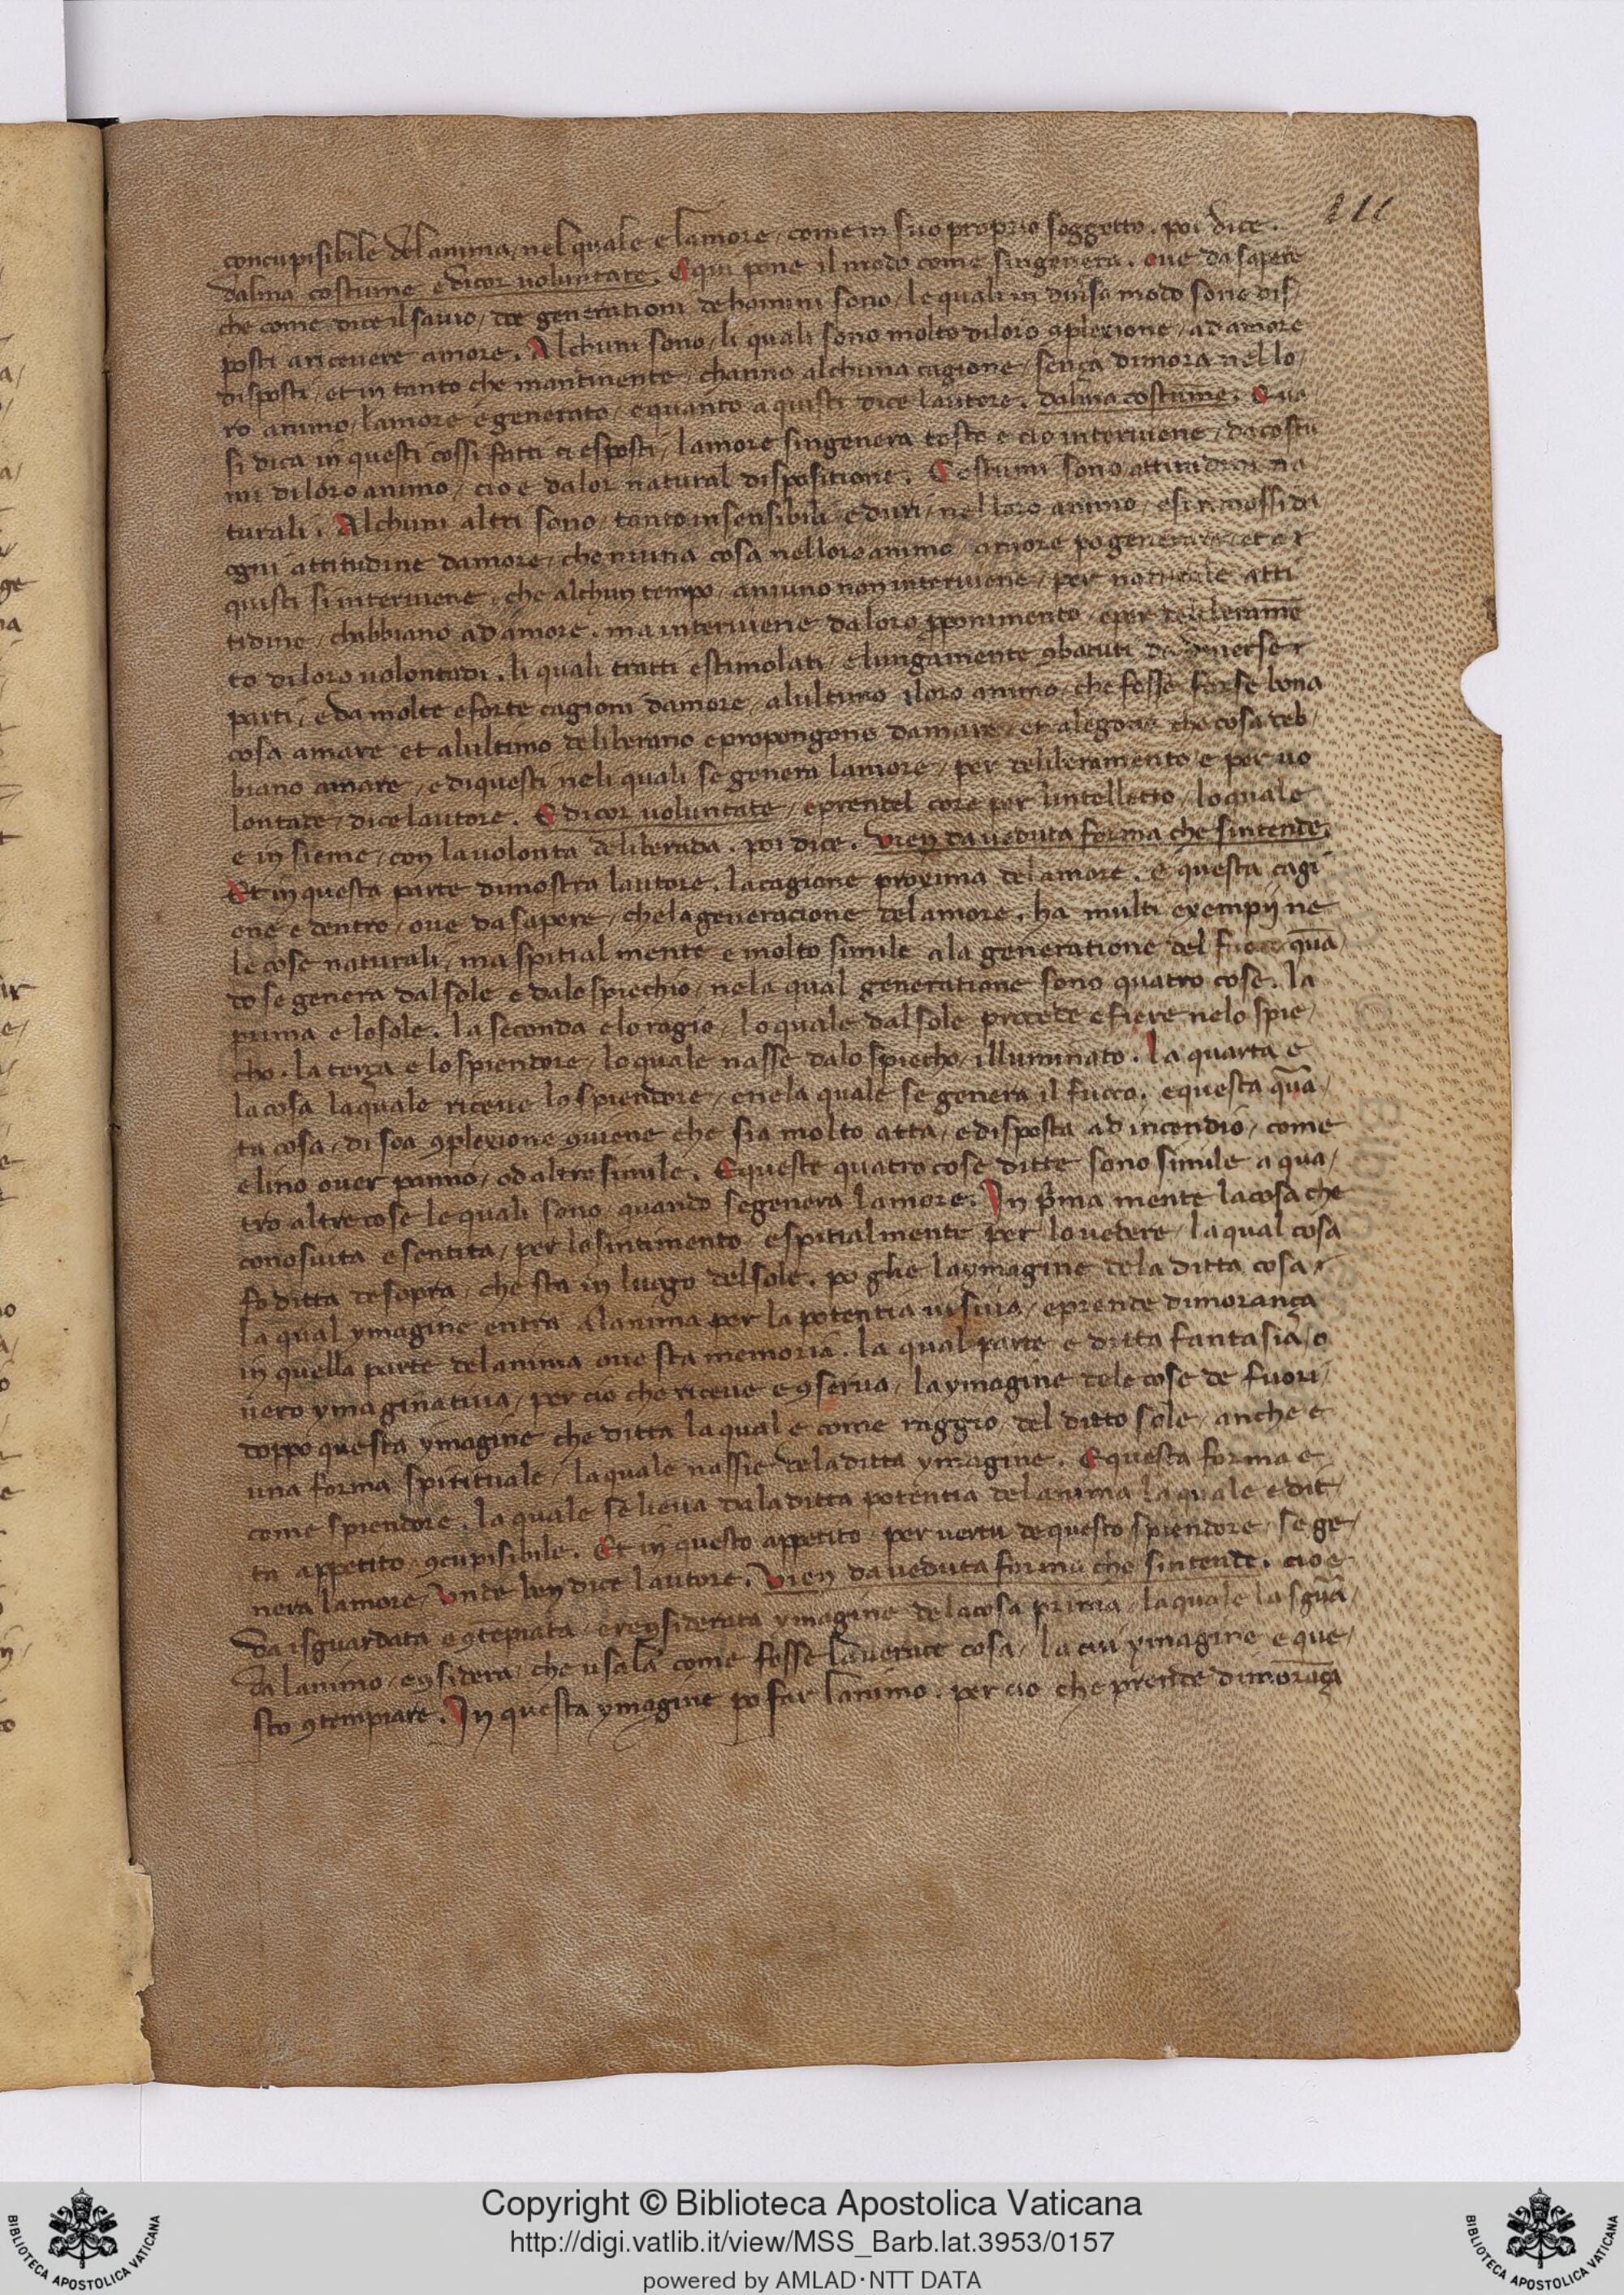 concupisibile del anima / nel quale e lamore / come in suo proprio soggetto . poi dice .
dalma costume e dicor voluntate . E qui pone il modo come singenera . ove da sapere
che come dice il savio / tre generationi de homini sono / le quali in diverso modo sono dis /
posti a ricevere amore . Alchuni sono / li quali sono molto di loro 9plexione / ad amore
disposti / et in tanto che mantinente / channo alchuna cagione / sença dimora nel lo /
ro animo / lamore e generato / e quanto a quisti dice lautore . dalma costume .
si dica in questi cossi fatti lamore singenera tosto e cio interviene / da costu
mi di loro animo / cio e da lor natural dispositione . Costumi sono attitudini na
turali . Alchuni altri sono / tanto insensibili e duri / nel loro animo / e si rimossi da
ogni attitudine damore / che niuna cosa nel loro animo / amore po generare
quisti si interviene / che alchun tempo / amino non interviene / per naturale atti
tudine / chabbiano ad amore . ma interviene da loro pponimento / e per
to di loro volontadi . li quali tratti e stimolati / e lungamente 9batuti da diverse
parti / e da molte e forte cagioni damore / a lultimo il loro animo / che fosse forse bona
cosa amare et a lultimo deliberano e propongono damare / et che cosa deb /
biano amare / e di questi neli quali se genera lamore / per deliberamento e per vo
lontate / dice lautore . E dicor voluntate / e prendel core per lintelletto / lo quale
e in sieme / con la volonta deliberada . poi dice . Vien da veduta forma che sintende .
Et in questa parte dimostra lautore . la cagione proxima del amore . e questa cagi
one e dentro / ove da sapere / che la generacione del amore . ha multi exempij ne
le cose naturali / ma spitial mente e molto simile a la generatione del fuoco quā /
do se genera dal sole e dalo spiechio / nela qual generatione sono quatro cose . la
prima e lo sole . la seconda e lo ragio / lo quale dal sole procede e fiere nelo spie /
cho . la terça e lo splendore / lo quale nasse dalo spiecho / illuminato . La quarta e
la cosa la quale riceve lo splendore / e nela quale se genera il fuoco . e questa qua /
ta cosa / di soa 9plexione 9viene che sia molto atta / e disposta ad incendio / come
e lino over panno / od altro simile . E queste quatro cose ditte sono simile a qua /
tro altre cose le quali sono quando se genera lamore . In pma mente la cosa che
conosuita e sentita / per lo sintimento e spitialmente per lo vedere / la qual cosa
fo ditta de sopra / che sta in luogo del sole . po glie la ymagine dela ditta cosa
la qual ymagine entra a lanima per la potentia visiva / e prende dimorança
in quella parte del anima ove sta memoria . la qual parte e ditta fantasia / o
vero ymaginativa / per cio che riceve e 9serva / la ymagine dele cose de fuori /
doppo questa ymagine che ditta la qual e come raggio del ditto sole / anche e
una forma spirituale / la quale nassie dela ditta ymagine . E questa forma e
come splendore . la quale se lieva dala ditta potentia del anima la quale e dit /
ta appetito 9cupisibile . Et in questo appetito / per vertu de questo splendore / se ge /
nera lamore / Unde ben dice lautore . Vien da veduta forma che sintende . cio e
da isguardata e 9tēplata / e 9siderata ymagine dela cosa prima / la quale la sguā /
da lanimo / come fosse la verace cosa / la cui ymagine e que /
sto 9templare . In questa ymagine po far lanimo . per cio che prende dimorāça
Copyright © Biblioteca Apostolica Vaticana
http://digi.vatlib.it/view/MSS_Barb.lat.3953/0157
powered by AMLAD·NTT DATA
BIBLIOTECA APOSTOLICA VATICANA
BIBLIOTECA APOSTOLICA VATICANA